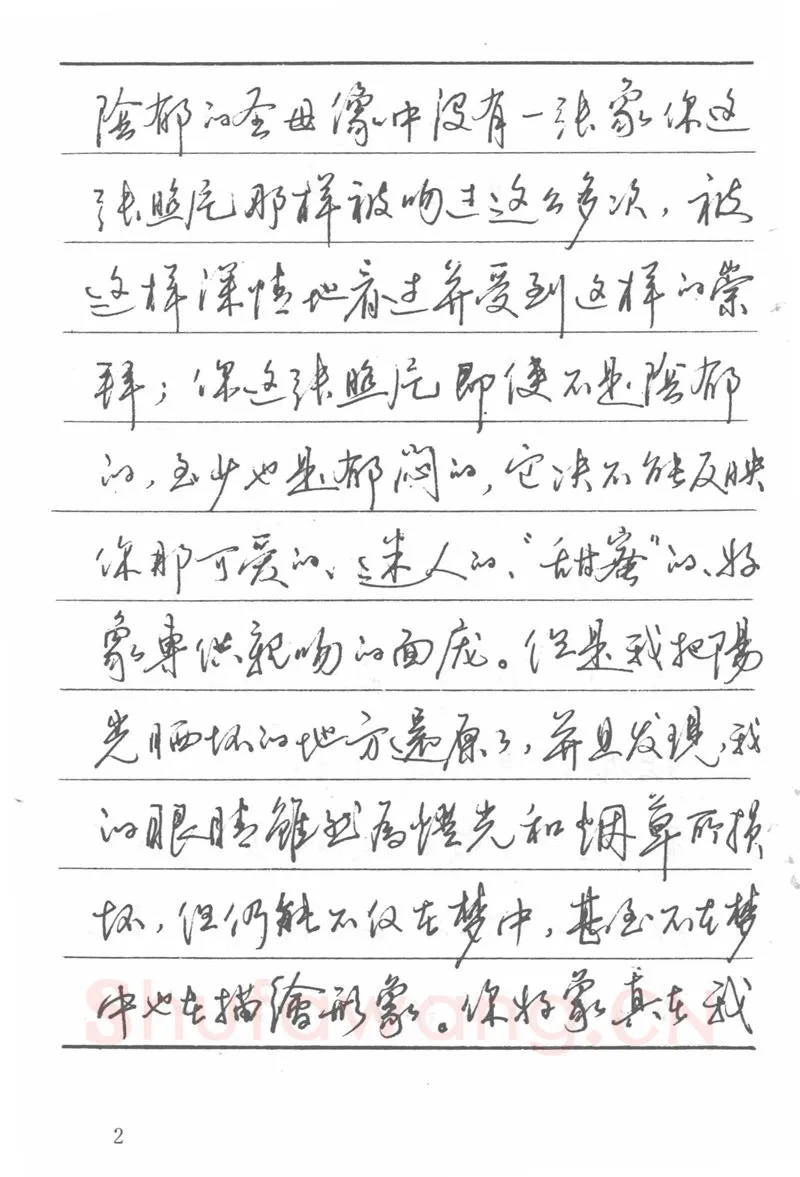 陰郁的圣母像中没有一张象你这
张照片那样被吻过这么多次，被
这样深情地看过并受到这样的崇
拜；你这张照片即使不是陰郁
的，至少也是郁闷的，它决不能反映
你那可爱的、迷人的、“甜蜜”的、好
象專供親吻的面庞。但是我把陽
光晒坏的地方還原了，并且发現，我
的眼睛雖然為燈光和烟草所損
坏，但仍能不仅在梦中，甚至不在梦
中也在描繪形象。你好象真在我
Shufawang.CN
2